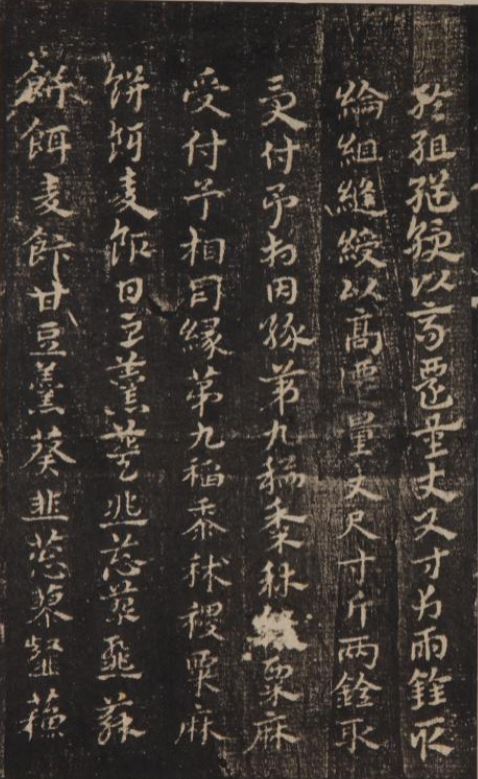 綸組縌綬以高遷量丈尺寸斤兩銓取
綸組縌綬以高遷量丈尺寸斤兩銓取
受付予相因緣第九稻黍秫粟麻
受付予相因緣第九稻黍秫稷粟麻
餅餌麦飯甘豆羹葵韭葱蓼韰蘇
餅餌麦飰甘豆羹葵韭葱蓼韰蘇